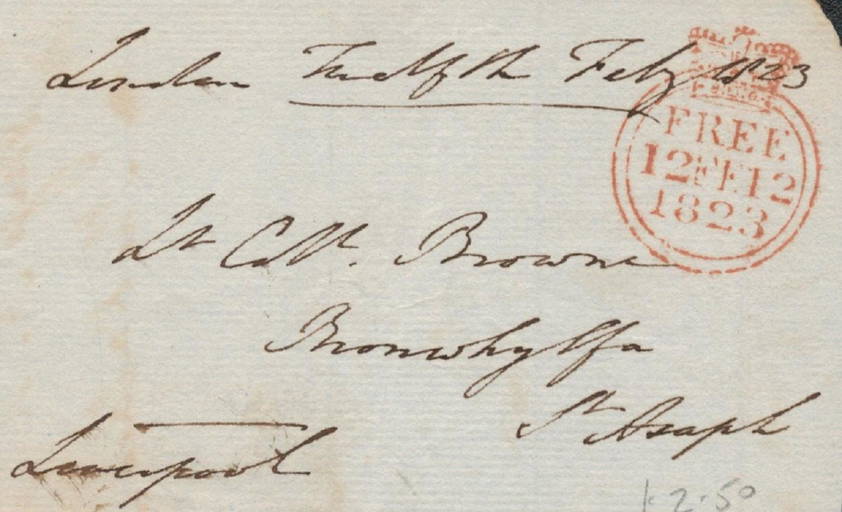 London Twelfth Feby 1823
FREE
12 FE 12
1823
Lt Coll. Browne
Bronwhylfa
St Asaph
Liverpool
2.50